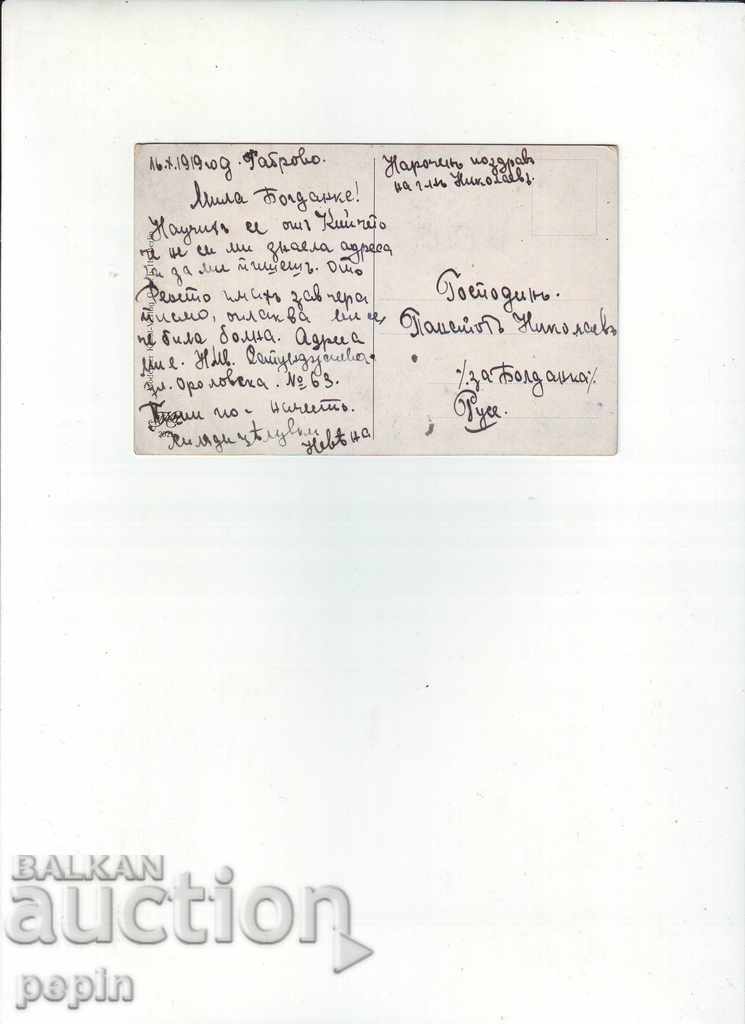 16.X.1919 год. Габрово.
Мила Богданке!
Научихъ се отъ
че не си ми знаела адреса
и за ми пишешъ. Отъ
имахъ завчера
писмо, оплаква ми се,
че била болна. Адреса
ми е. Н.Ив.
ул. Орловска. №63.
Пиши по-начесто.
Хиляди цѣлувки
Невѣна
Нароченъ поздравъ
на г-нъ Николаевъ.
Господинъ.
Николаевъ
/. за Богданка /.
Русе.
BALKAN
auction
pepin